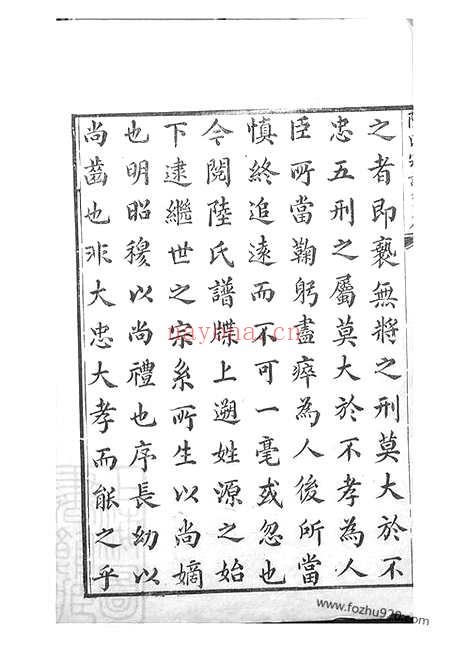 之者即褻無將之刑莫大於不
忠五刑之屬莫大於不孝為人
臣所當鞠躬盡瘁為人後所當
慎終追遠而不可一毫或忽也
今閱陸氏譜牒上遡姓源之始
下逮繼世之宗系所生以尚嫡
也明昭穆以尚禮也序長幼以
尚齒也非大忠大孝而能之乎
nayona.cn
www.fozhu920.com